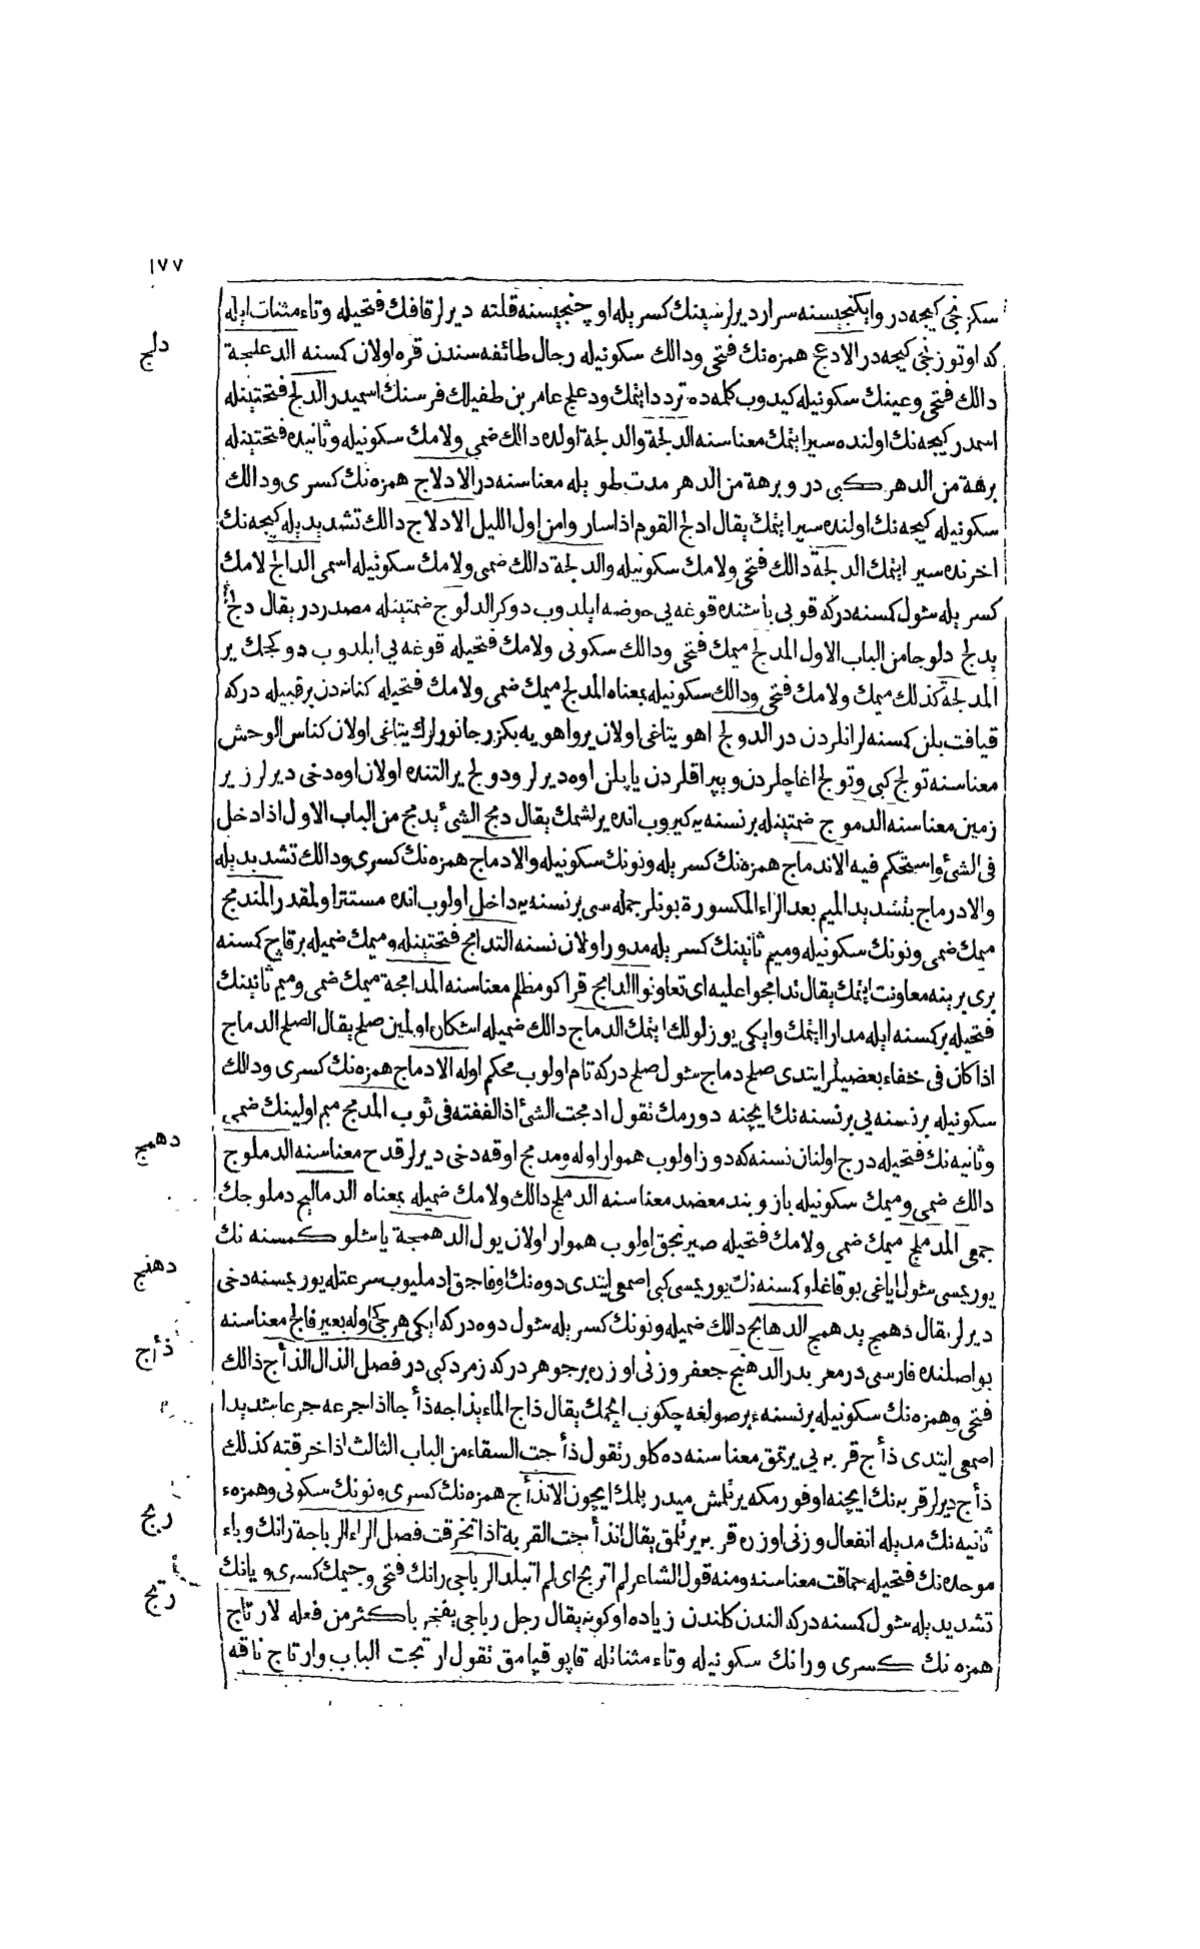 ١٧٧
سكزنجى كيجه در وايكنجيسنه سرار ديرلر سينك كسريله اوچنجيسنه قلته ديرلر قافك فتحيله وتاء مثنات ايله
دلج
كه اوتوزنجى كيجه در الادعج همزه نك فتحى ودالك سكونيله رجال طائفه سندن قره اولان كسنه الدعلجة
دالك فتحى وعينك سكونيله كيدوب كلمه ده تردد ايتمك ودعلج عامر بن طفيلك فرسنك اسميدر الدلج فتحتينله
اسمدر كيجه نك اولنده سير ايتمك معناسنه الدلجة والدلجة اوله دالك ضمى ولامك سكونيله وثانيده فتحتينله
برهة من الدهر كبى در وبرهة من الدهر مدت طويله معناسنه در الادلاج همزه نك كسرى ودالك
سكونيله كيجه نك اولنده سير ايتمك يقال ادلج القوم اذا ساروا من اول الليل الادلاج دالك تشديديله كيجه نك
اخرنده سير ايتمك الدلجة دالك فتحى ولامك سكونيله والدلجة دالك ضمى ولامك سكونيله اسمى الدالج لامك
كسريله شول كسنه در كه قويى باشنده قوغه يى حوضه ايلدوب دوكر الدلوج ضمتينله مصدردر يقال دلج
يدلج دلوجا من الباب الاول المدلج ميمك فتحى ودالك سكونى ولامك فتحيله قوغه يى ايلدوب دوكجك ير
المدلجة كذلك ميمك ولامك فتحى ودالك سكونيله بمعناه المدلج ميمك ضمى ولامك فتحيله كنانه دن بر قبيله در كه
قيافت بلن كسنه لر انلردن در الدولج اهو يتاغى اولان ير واهويه بكزر جانورلرك يتاغى اولان كناس الوحش
معناسنه تولج كبى وتولج اغاچلردن وبيراقلردن ياپلن اوه ديرلر ودولج ير التنده اولان اوه دخى ديرلر زير
زمين معناسنه الدموج ضمتينله بر نسنه يه كيروب انده يرلشمك يقال دمج الشئ يدمج من الباب الاول اذا دخل
فى الشئ واستحكم فيه الاندماج همزه نك كسريله ونونك سكونيله والادماج همزه نك كسرى ودالك تشديديله
والادرماج بتشديد الميم بعد الراء المكسورة بونلر جمله سى بر نسنه يه داخل اولوب انده مستتر اولمقدر المندمج
ميمك ضمى ونونك سكونيله وميم ثانينك كسريله مدور اولان نسنه التدامج فتحتينله وميمك ضميله بر قاچ كسنه
برى برينه معاونت ايتمك يقال تدامجوا عليه اى تعاونوا الدامج قراكو مظلم معناسنه المدامجة ميمك ضمى وميم ثانينك
فتحيله بر كسنه ايله مدارا ايتمك وايكى يوزلولك ايتمك الدماج دالك ضميله اشكاره اولمين صلح يقال الصلح الدماج
اذا كان فى خفاء بعضيلر ايتدى صلح دماج شول صلح در كه تام اولوب محكم اوله الادماج همزه نك كسرى ودالك
سكونيله بر نسنه يى بر نسنه نك ايچنه دورمك تقول ادمجت الشئ اذا لففته فى ثوب المدمج ميم اولينك ضمى
دهمج
وثانيه نك فتحيله درج اولنان نسنه كه دوز اولوب هموار اوله ومدمج اوقه دخى ديرلر قدح معناسنه الدملوج
دالك ضمى وميمك سكونيله بازوبند معضد معناسنه الدملج دالك ولامك ضميله بمعناه الدماليج دملوجك
جمعى المدملج ميمك ضمى ولامك فتحيله صيرنجق اولوب هموار اولان يول الدهمجة ياشلو كمسنه نك
دهنج
يوريمسى شول اياغى بوقاغلو كسنه نك يوريمسى كبى اصمعى ايتدى دوه نك اوفاجق ادمليوب سرعتله يوريمسنه دخى
ديرلر يقال دهمج يدهمج الدهانج دالك ضميله ونونك كسريله شول دوه در كه ايكى هركجى اوله بعير فالج معناسنه
ذأج
بو اصلنده فارسى در معربدر الدهنج جعفر وزنى اوزره بر جوهر در كه زمرد كبى در فصل الذال الذأج ذالك
فتحى وهمزه نك سكونيله بر نسنه بر صولغه چكوب ايچمك يقال ذأج الماء يذاجه ذأجا اذا جرعه جرعا شديدا
اصمعى ايتدى ذأج قربه يى يرتمق معناسنه ده كلور تقول ذأجت السقاء من الباب الثالث اذا خرقته كذلك
ذأج ديرلر قربه نك ايچنه اوفورمكه يرتلمش ميدر بلمك ايچون الانذأج همزه نك كسرى ونونك سكونى وهمزهء
ربج
ثانيه نك مديله انفعال وزنى اوزره قربه يرتلمق يقال انذأجت القربة اذا تخرقت فصل الراء الرباجة رانك وباء
موحده نك فتحيله حماقت معناسنه ومنه قول الشاعر لم اتربج اى لم اتبلد الرباجى رانك فتحى وجيمك كسرى ويانك
رتج
تشديديله شول كسنه در كه الندن كلندن زياده اوكونه يقال رجل رباجى يفتخر باكثر من فعله لارتاج
همزه نك كسرى ورانك سكونيله وتاء مثناتله قاپو قپامق تقول ارتجت الباب وارتاج ناقه